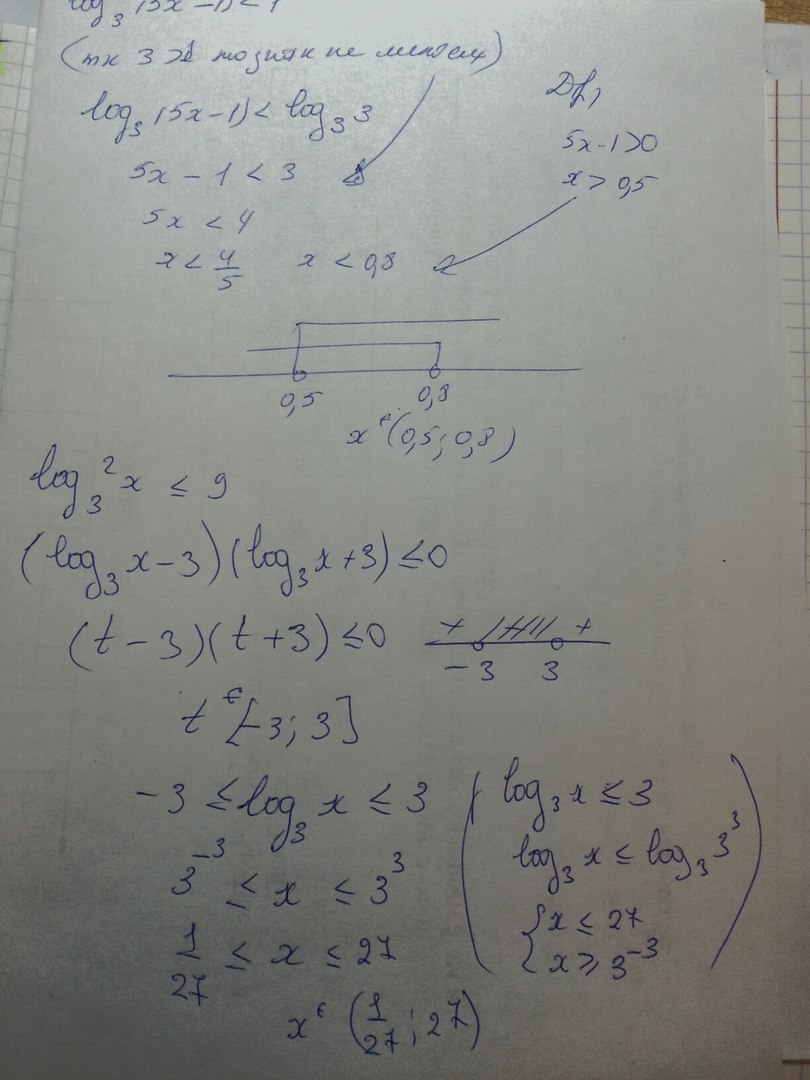 log₃(5x-1)<1
(тк 3>1 то знак не меняем)
log₃(5x-1)<log₃3
5x-1<3
5x<4
x<4/5 x<0,8
5x-1>0
x>0,5
0,5 0,8
x∈(0,5;0,8)
log₃²x≤9
(log₃x-3)(log₃x+3)≤0
(t-3)(t+3)≤0
+ +
-3 3
t∈[-3;3]
-3≤log₃x≤3
3⁻³≤x≤3³
1/27≤x≤27
x∈(1/27;27)
(log₃x≤3
log₃x≤log₃3³
{x≤27
x≥3⁻³)